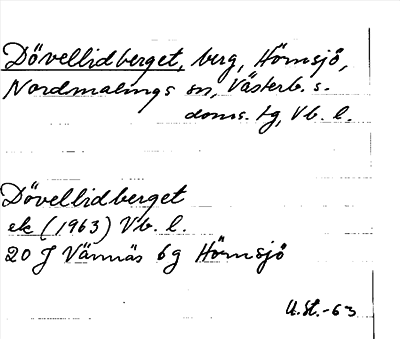 Dövellidberget, berg, Hörnsjö,
Nordmalings sn, Västerb. s.
doms. tg, Vb. l.
Dövellidberget
ek (1963) Vb. l.
20 J Vännäs 6g Hörnsjö
U. St. -63